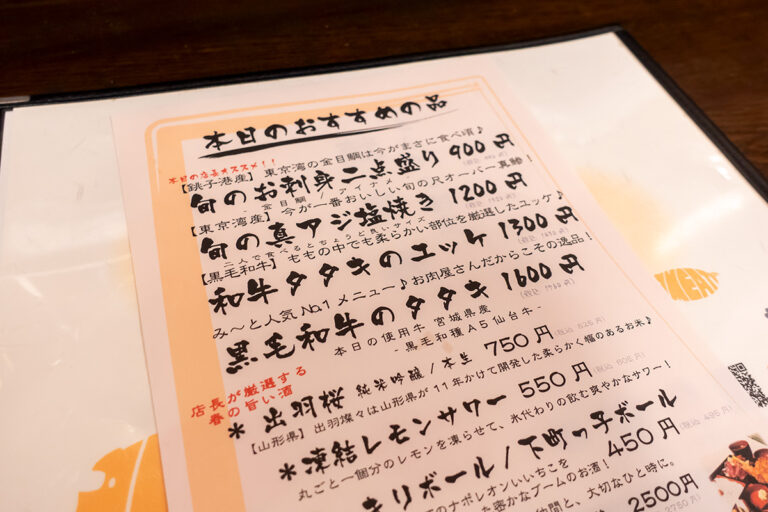 本日のおすすめの品
本日の店長オススメ!!
【銚子港産】東京湾の金目鯛は今がまさに食べ頃♪
旬のお刺身二点盛り 900円
金目鯛 / アイナメ
【東京湾産】今が一番おいしい旬の尺オーバー真鯵!
旬の真アジ塩焼き 1200円
二人で食べるとちょうど良いサイズ
【黒毛和牛】ももの中でも柔らかい部位を厳選したユッケ♪
和牛タタキのユッケ 1300円
み〜と人気No.1メニュー♪お肉屋さんだからこその逸品!
黒毛和牛のタタキ 1600円
本日の使用牛 宮城県産
- 黒毛和種A5仙台牛 -
店長が厳選する
春の旨い酒
* 出羽桜 純米吟醸/本生 750円(税込 825円)
【山形県】出羽燦々は山形県が11年かけて開発した柔らかく幅のあるお米♪
* 凍結レモンサワー 550円(税込 605円)
丸ごと一個分のレモンを凍らせて、氷代わりの飲む爽やかなサワー!
キリボール/下町っ子ボール
450円(税込 495円)
のナポレオンいいちこを
た密かなブームのお酒!
仲間と、大切なひと時に。
2500円
MEAT